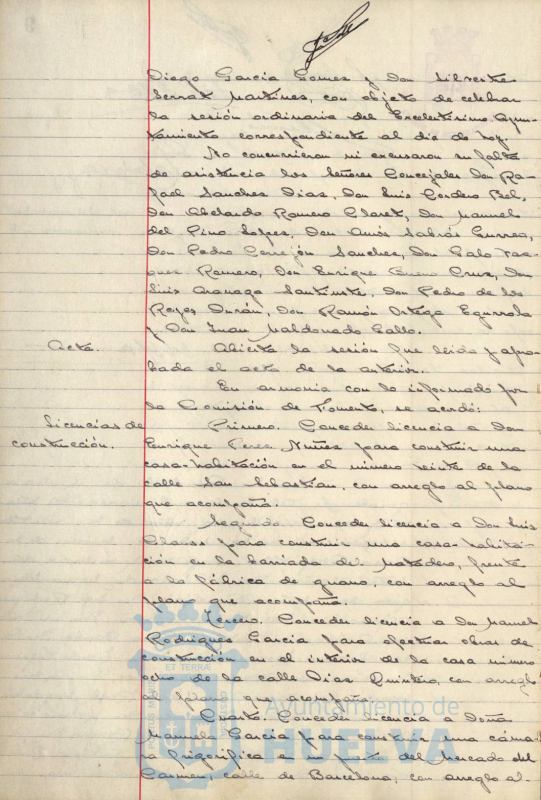 Diego García Gomez y Don Silvestre
Serrat Martines, con objeto de celebrar
la sesión ordinaria del Excelentísimo Ayun-
tamiento correspondiente al día de hoy.
No concurrieron ni excusaron su falta
de asistencia los Señores Concejales Don Ra-
fael Sanches Dias, Don Luis Cordero Bel,
Don Abelardo Romero Claret, Don Manuel
del Pino Lopes, Don Amós Sabrás Gurrea,
Don Pedro Cerrejón Sanches, Don Galo Vas-
ques Romero, Don Enrique Bueno Cruz, Don
Luis Aranaga Santurste, Don Pedro de los
Reyes Durán, Don Ramón Ortega Egurrola
y Don Juan Maldonado Gallo.
Acta.
Abierta la sesión fue leida y apro-
bada el acta de la anterior.
En armonia con lo informado por
la Comisión de Fomento, se acordó:
Licencias de
construcción.
Primero. Conceder licencia a Don
Enrique Perez Nuñez para construir una
casa-habitación en el número veinte de la
calle San Sebastian, con arreglo al plano
que acompaña.
Segundo. Conceder licencia a Don Luis
para construir una casa-habita-
ción en la barriada del Matadero, frente
a la fábrica de guano, con arreglo al
plano que acompaña.
Tercero. Conceder licencia a Don Manuel
Rodrigues García para efectuar obras de
construcción en el interior de la casa número
ocho de la calle Dias Quintero, con arreglo
al plano que acompaña.
Cuarto. Conceder licencia a Doña
Manuela García para construir una cáma-
ra frigorífica en su puesto del Mercado del
Carmen, calle de Barcelona, con arreglo al-
Ayuntamiento de
HUELVA
PORTUS MARIS
ET TERRAE